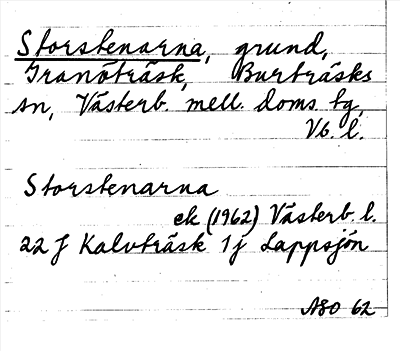 Storstenarna, grund,
Granöträsk, Burträsks
sn, Västerb. mell. doms. tg,
Vb. l.
Storstenarna
ek (1962) Västerb. l.
22 J Kalvträsk 1j Lappsjön
ASO 62